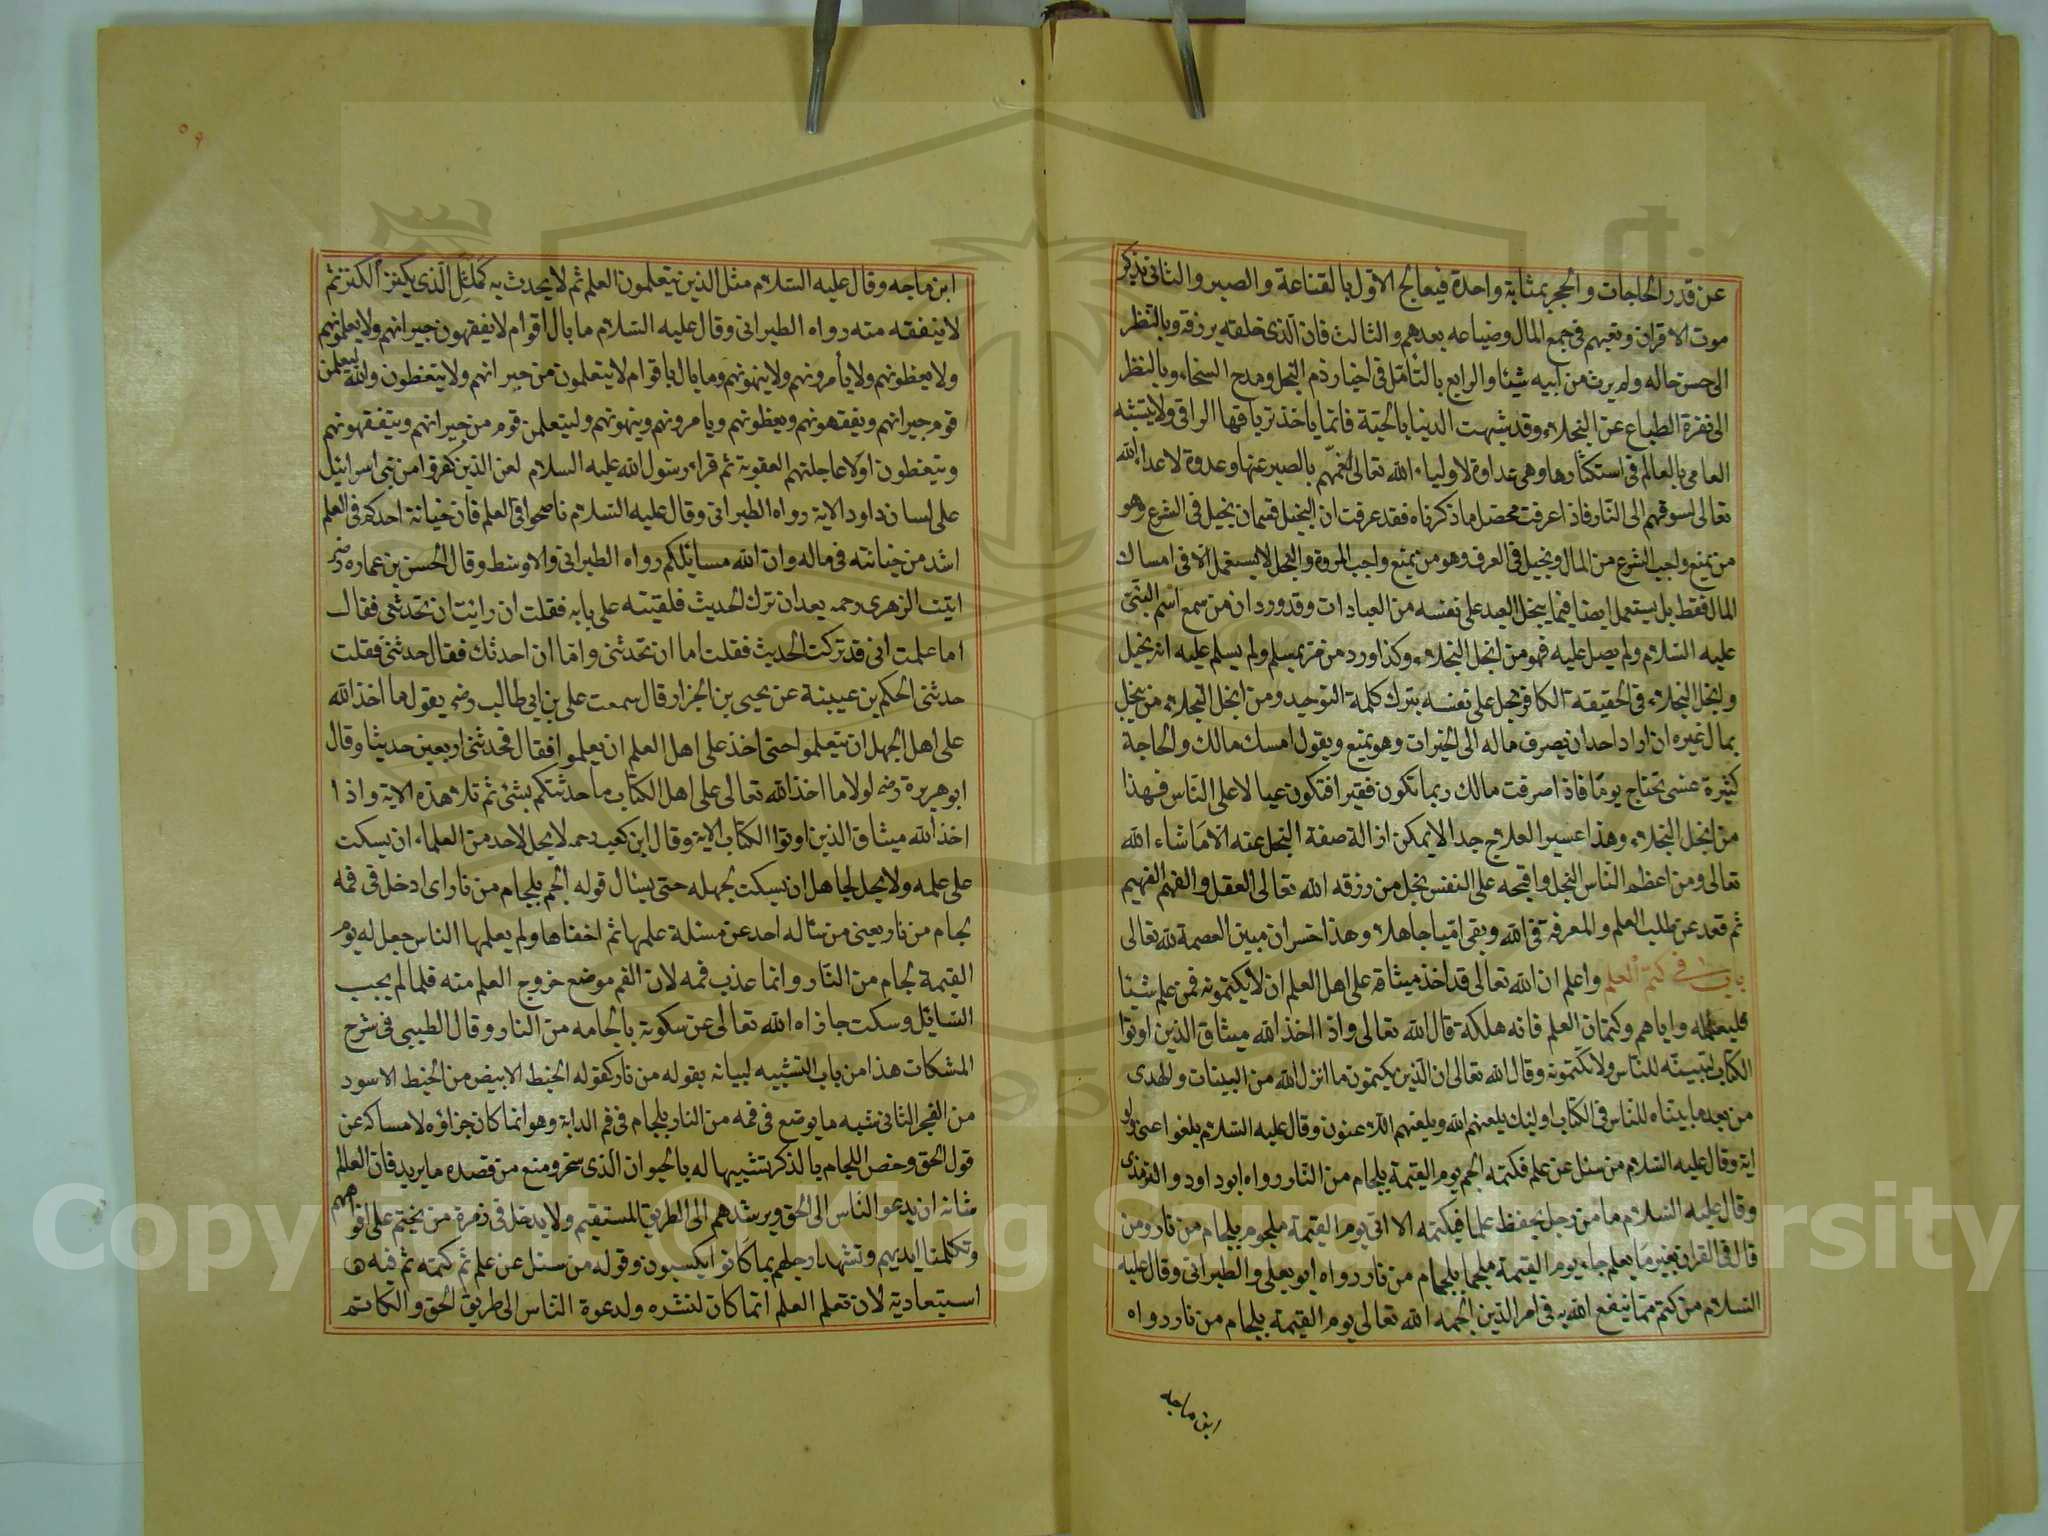 عن قدر الحاجات والحجر بمثابة واحدة فيعالج الاول بالقناعة والصبر والثاني بذكر
موت الاقران وتعبهم في جمع المال وضياعه بعدهم والثالث فان الذى خلقه يرزقه وبالنظر
الى حسن حاله ولم يرث من ابيه شيئا والرابع بالتأمل فى اخبار ذم البخل ومدح السخاء وبالنظر
الى نفرة الطباع عن البخلاء وقد شبهت الدنيا بالحية فانما ياخذ ترياقها الراقى ولا يتشبه
العامى بالعالم فى استكثارها وهى عداوة لاولياء الله تعالى بالصبر عنها وعدوة لاعداء الله
تعالى لسوقهم الى النار فاذا عرفت محصل ما ذكرناه فقد عرفت ان البخل قسمان بخيل فى الشرع وهو
من يمنع واجب الشرع من المال وبخيل فى العرف وهو من يمنع واجب المروة والبخل لا يستعمل الا فى امساك
المال فقط بل يستعمل ايضا فيما يبخل العبد على نفسه من العبادات وقد ورد ان من سمع اسم النبى
عليه السلام ولم يصل عليه فهو من ابخل البخلاء وكذا ورد من مر بمسلم ولم يسلم عليه انه بخيل
وابخل البخلاء فى الحقيقة الكافر بخل على نفسه بترك كلمة التوحيد ومن ابخل البخلاء من يبخل
بمال غيره ان اراد احد ان يصرف ماله الى الخيرات وهو يمنع ويقول امسك مالك والحاجة
كثيرة عسى تحتاج يوما فاذا صرفت مالك ربما تكون فقيرا فتكون عيالا على الناس فهذا
من ابخل البخلاء وهذا عسير العلاج جدا لا يمكن ازالة صفة البخل عنه الا ما شاء الله
تعالى ومن اعظم الناس البخل واقبحه على النفس بخل من رزقه الله تعالى العقل والفهم الفهيم
ثم قعد عن طلب العلم والمعرفة فى الله وبقى اميا جاهلا وهذا خسران مبين العصمة لله تعالى
باب فى كتم العلم واعلم ان الله تعالى قد اخذ ميثاقه على اهل العلم ان لا يكتمونه فمن علم شيئا
فليعلمه واياهم وكتمان العلم فانه هلكة قال الله تعالى واذ اخذ الله ميثاق الذين اوتوا
الكتاب لتبيننه للناس ولا تكتمونه وقال الله تعالى ان الذين يكتمون ما انزل الله من البينات والهدى
من بعد ما بيناه للناس فى الكتاب اولئك يلعنهم الله ويلعنهم اللاعنون وقال عليه السلام بلغوا عنى ولو
اية وقال عليه السلام من سئل عن علم فكتمه الجم يوم القيمة بلجام من النار رواه ابو داود والترمذى
وقال عليه السلام ما من رجل يحفظ علما فيكتمه الا اتى يوم القيمة ملجوم بلجام من نار ومن
قال فى القران بغير ما يعلم جاء يوم القيمة ملجما بلجام من نار رواه ابو يعلى والطبرانى وقال عليه
السلام من كتم مما ينفع الله به فى امر الدين الجمه الله تعالى يوم القيمة بلجام من نار رواه
ابن ماجه
٥٩
ابن ماجه وقال عليه السلام مثل الذين يتعلمون العلم ثم لا يحدث به كمثل الذى يكنز الكنز ثم
لا ينفقه منه رواه الطبرانى وقال عليه السلام ما بال اقوام لا يفقهون جيرانهم ولا يعلمونهم
ولا يعظونهم ولا يأمرونهم ولا ينهونهم وما بال باقوام لا يتعلمون من جيرانهم ولا يتعظون والله ليعلمن
قوم جيرانهم ويفقهونهم ويعظونهم ويامرونهم وينهونهم وليتعلمن قوم من جيرانهم ويتفقهونهم
ويتعظون او لاعاجلنهم العقوبة ثم قراء رسول الله عليه السلام لعن الذين كفروا من بنى اسرائيل
على لسان داود الاية رواه الطبرانى وقال عليه السلام ناصحوا فى العلم فان خيانة احدكم فى العلم
اشد من خيانته فى ماله وان الله مسائلكم رواه الطبرانى والاوسط وقال الحسن بن عماره رضى
اتيت الزهرى رحمه بعد ان ترك الحديث فلقيته على بابه فقلت ان رايت ان تحدثنى فقال
اما علمت انى قد تركت الحديث فقلت اما ان تحدثنى واما ان احدثك فقال حدثنى فقلت
حدثنى الحكم بن عيينة عن يحيى بن الجزار قال سمعت على بن ابى طالب رضى يقول ما اخذ الله
على اهل الجهل ان يتعلموا حتى اخذ على اهل العلم ان يعلموا فقال فحدثنى اربعين حديثا وقال
ابو هريرة رضى لولا ما اخذ الله تعالى على اهل الكتاب ما حدثتكم بشئ ثم تلا هذه الاية واذا
اخذ الله ميثاق الذين اوتوا الكتاب الاية وقال ابن كعب رحمه لا يحل لاحد من العلماء ان يسكت
على علمه ولا يحل لجاهل ان يسكت لجهله حتى يسئال قوله الجم بلجام من نار اى ادخل فى فمه
لجام من نار يعنى من سئاله احد عن مسئلة علمها ثم اخفاها ولم يعلمها الناس جعل له يوم
القيمة لجام من النار وانما عذب فمه لان الفم موضع خروج العلم منه فلما لم يجب
السائل وسكت جازاه الله تعالى عن سكوته بالجامه من النار وقال الطيبى فى شرح
المشكات هذا من باب التشبيه لبيانه بقوله من نار كقوله الخيط الابيض من الخيط الاسود
من الفجر الثانى شبه ما يوضع فى فمه من النار بلجام فى فم الدابة وهو انما كان جزاؤه لامساكه عن
قول الحق وخص اللجام بالذكر تشبيها له بالحيوان الذى سخر ومنع من قصده ما يريد فان العالم
شانه ان يدعو الناس الى الحق ويرشدهم الى الطريق المستقيم ولا يدخل فى زمرة من يختم على افواههم
وتكلمنا ايديهم وتشهد ارجلهم بما كانوا يكسبون وقوله من سئل عن علم ثم كتمه ثم فيه
استبعادية لان تعلم العلم انما كان لنشره ولدعوة الناس الى طريق الحق والكاتم
Copyright © King Saud University